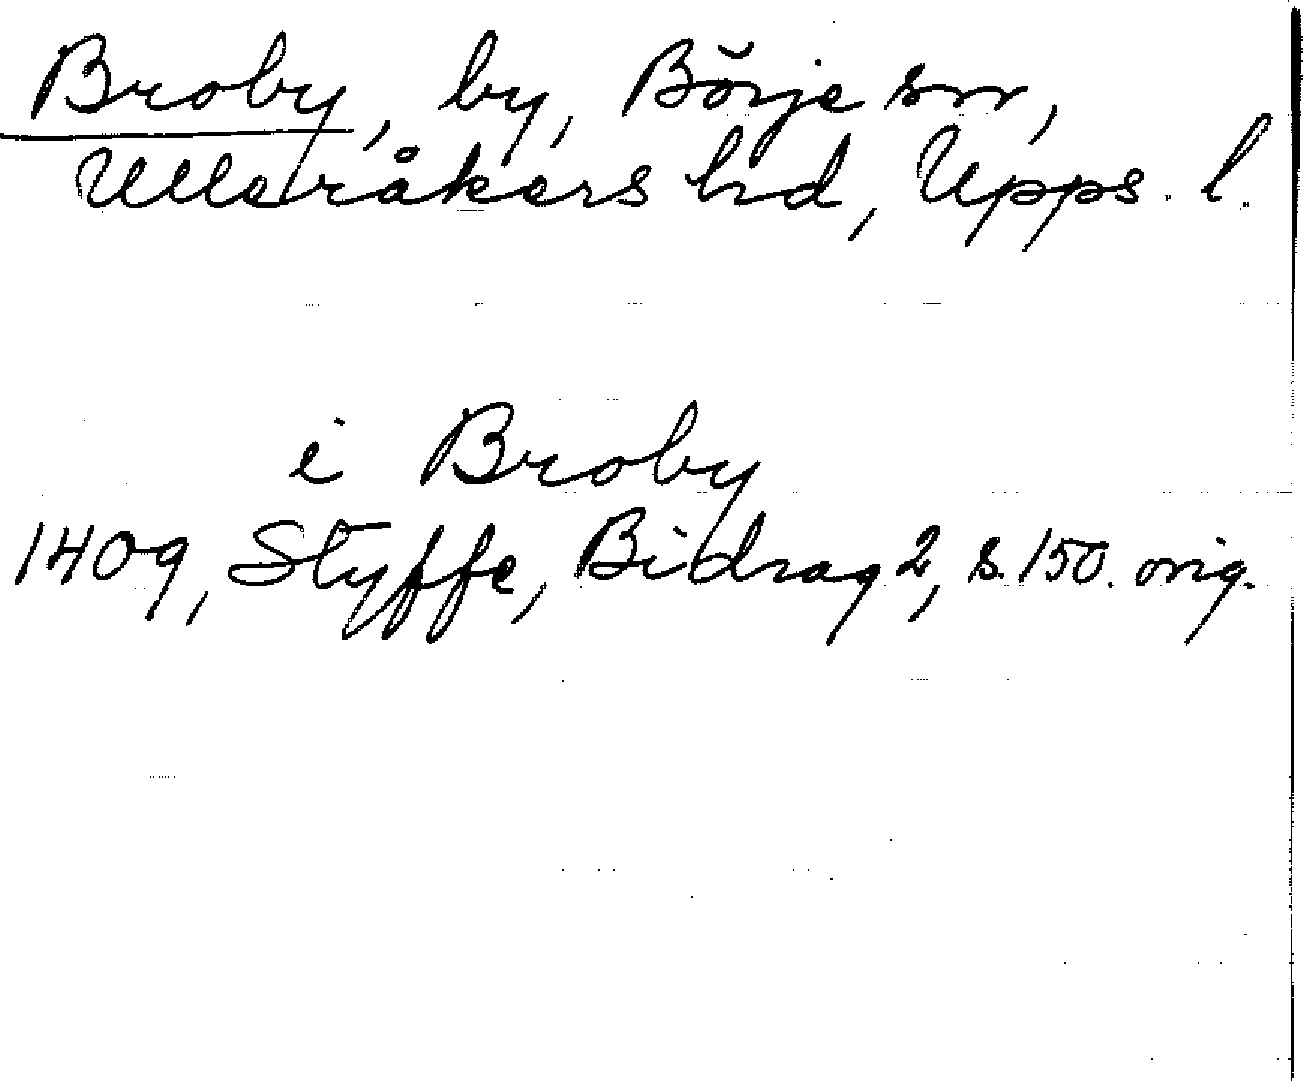 Broby, by, Börje sn,
Ulleråkers hd, Upps. l.
i Broby
1409, Styffe, Bidrag 2, s. 150. orig.